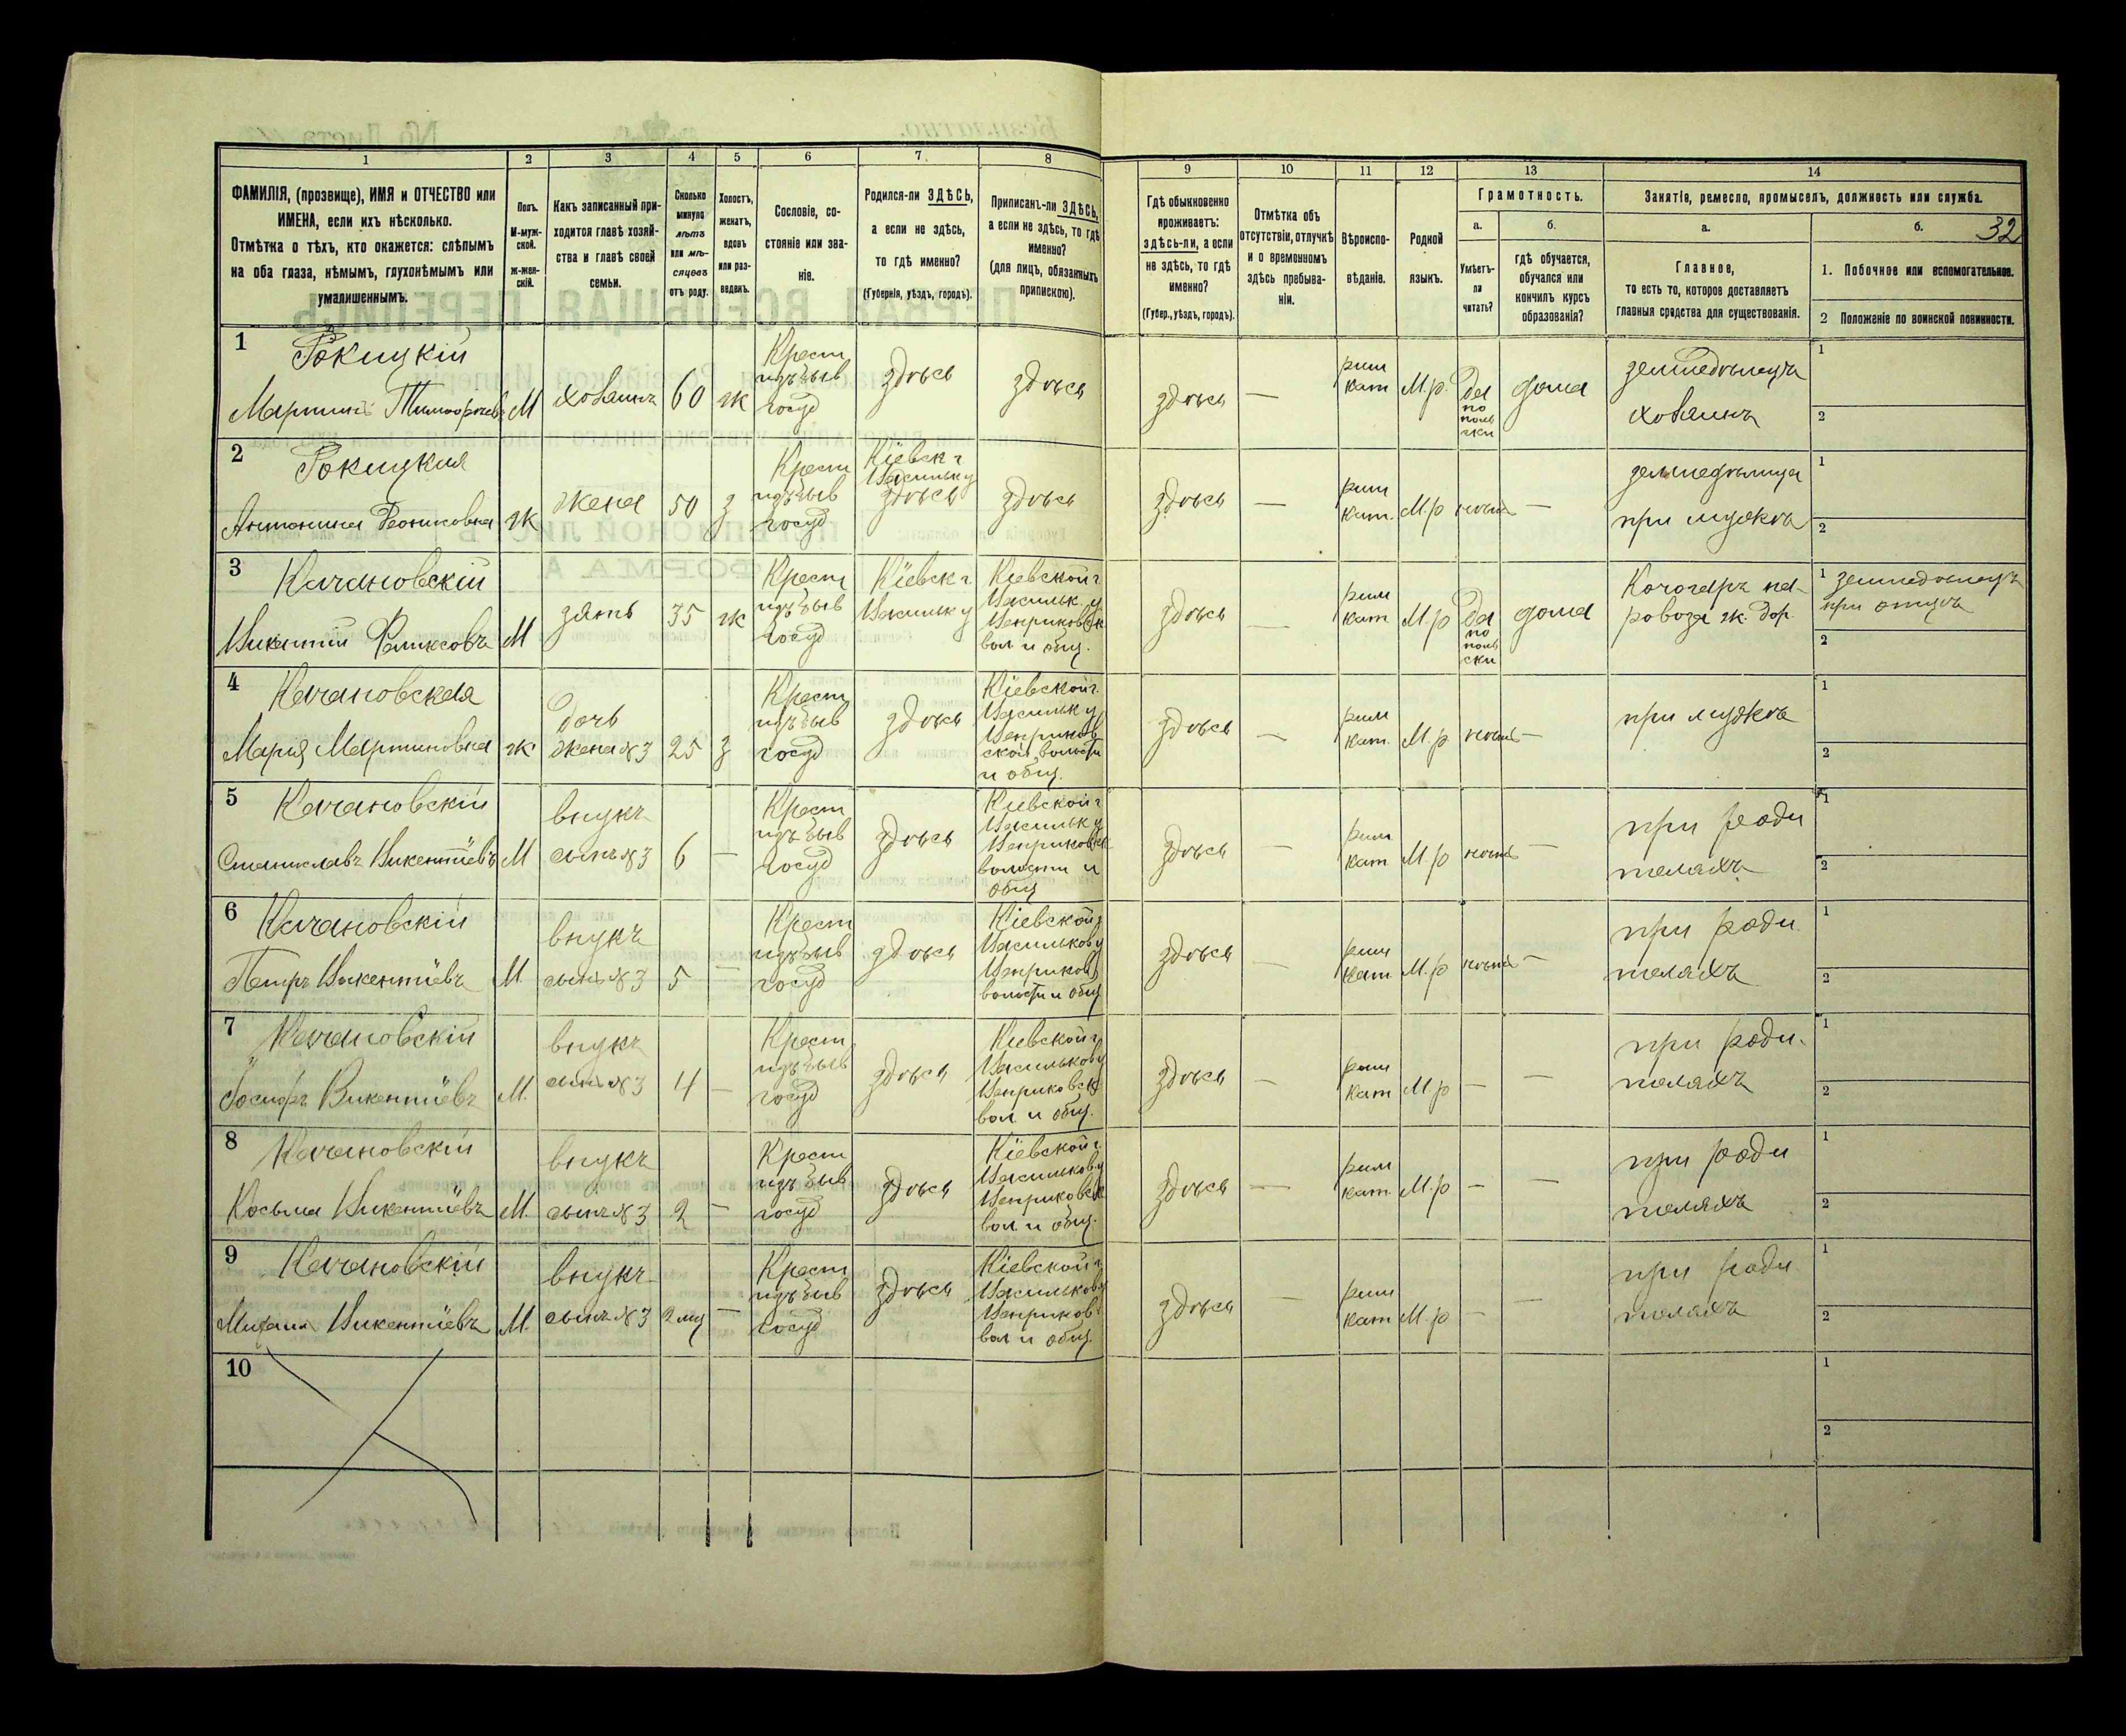 1 2 3 4 5 6 7 8 9 10 11 12 13 14
ФАМИЛІЯ, (прозвище), ИМЯ и ОТЧЕСТВО или
ИМЕНА, если ихъ нѣсколько.
Отмѣтка о тѣхъ, кто окажется: слѣпымъ
на оба глаза, нѣмымъ, глухонѣмымъ или
умалишеннымъ.
Полъ.
М-муж-
ской.
ж-жен-
скій.
Какъ записанный при-
ходится главѣ хозяй-
ства и главѣ своей
семьи.
Сколько
минуло
лѣтъ
или мѣ-
сяцевъ
отъ роду.
Холостъ,
женатъ,
вдовъ
или раз-
веденъ.
Сословіе, со-
стояніе или зва-
ніе.
Родился-ли ЗДѢСЬ,
а если не здѣсь,
то гдѣ именно?
(Губернія, уѣздъ, городъ).
Приписанъ-ли ЗДѢСЬ,
а если не здѣсь, то гдѣ
именно?
(для лицъ, обязанныхъ
припискою).
Гдѣ обыкновенно
проживаетъ:
здѣсь-ли, а если
не здѣсь, то гдѣ
именно?
(Губер., уѣздъ, городъ).
Отмѣтка объ
отсутствіи, отлучкѣ
и о временномъ
здѣсь пребыва-
ніи.
Вѣроиспо-
вѣданіе.
Родной
языкъ.
Грамотность.
а.
Умѣетъ-
ли
читать?
б.
гдѣ обучается,
обучался или
кончилъ курсъ
образованія?
Занятіе, ремесло, промыселъ, должность или служба.
а.
Главное,
то есть то, которое доставляетъ
главныя средства для существованія.
б. 32
1. Побочное или вспомогательное.
2 Положеніе по воинской повинности.
1 Рокицкій
Мартинъ Тимофѣевъ М хозяинъ 60 ж
Крест
изъ быв
госуд
здѣсь здѣсь здѣсь —
рим
кат
М.р.
Да
по
поль
ски
дома
земледѣлецъ
хозяинъ
1
2
2 Рокицкая
Антонина Леонковна ж жена 50 з
Крест
изъ быв
госуд
Кіевск г
Васильк у
здѣсь
здѣсь здѣсь —
рим
кат.
М.р нѣтъ —
земледѣлица
при мужѣ
1
2
3 Качановскій
Викентій Феликсовъ М зять 35 ж
Крест
изъ быв
госуд
Кіевск г
Васильк у
Кіевской г
Васильк. у
Ценриковск
вол и общ.
здѣсь —
рим
кат
М.р
Да
по
поль
ски
дома
Кочегаръ па-
ровоза ж. дор.
1 земледѣлецъ
при отцѣ
2
4 Качановская
Марія Мартиновна ж
дочь
жена №3
25 з
Крест
изъ быв
госуд
здѣсь
Кіевской г.
Васильк у
Ценриков
ской волости
и общ.
здѣсь —
рим
кат.
М.р нѣтъ —
при мужѣ
1
2
5 Качановскій
Станиславъ Викентіевъ М
внукъ
сынъ №3
6 —
Крест
изъ быв
госуд
здѣсь
Кіевской г
Васильк у
Ценриковск
волости и
общ
здѣсь —
рим
кат
М.р нѣтъ —
при роди
теляхъ
1
2
6 Качановскій
Петръ Викентіевъ М.
внукъ
сынъ №3
5 —
Крест
изъ быв
госуд
здѣсь
Кіевской г
Васильков у
Ценриков
волости и общ
здѣсь —
рим
кат
М.р нѣтъ —
при роди
теляхъ
1
2
7 Качановскій
Іосифъ Викентіевъ М.
внукъ
сынъ №3
4 —
Крест
изъ быв
госуд
здѣсь
Кіевской г
Васильков у
Ценриковск
вол и общ.
здѣсь —
рим
кат
М.р — —
при роди-
теляхъ
1
2
8 Качановскій
Косьма Викентіевъ М.
внукъ
сынъ №3
2 —
Крест
изъ быв
госуд
здѣсь
Кіевской г.
Васильков у
Ценриковск
вол и общ.
здѣсь —
рим
кат.
М.р — —
при роди
теляхъ
1
2
9 Качановскій
Михаилъ Викентіевъ М.
внукъ
сынъ №3
2 мц —
Крест
изъ быв
госуд
здѣсь
Кіевской г
Васильков у
Ценриков
вол и общ.
здѣсь —
рим
кат
М.р — —
при роди
теляхъ
1
2
10
1
2